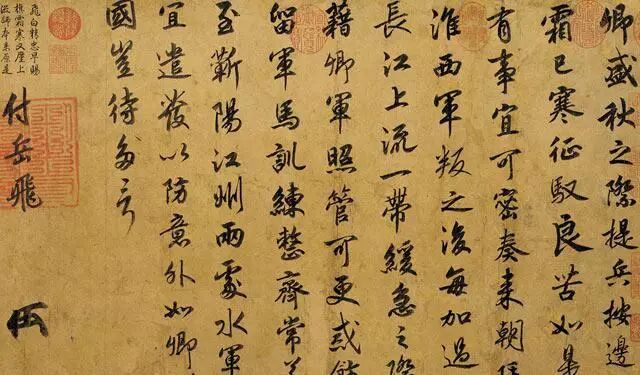 卿盛秋之際提兵按邊
霜已寒征馭良苦如是
有事宜可密奏來朝
淮西軍叛之後每加過
長江上流一帶緩急之際
藉卿軍照管可更戒飭
留軍馬訓練整齊常若
至蘄陽江州兩處水軍
宜遣發以防意外如卿
國豈待多言
付岳飛
飛白精忠早賜
霜寒又歷上
師本來原是